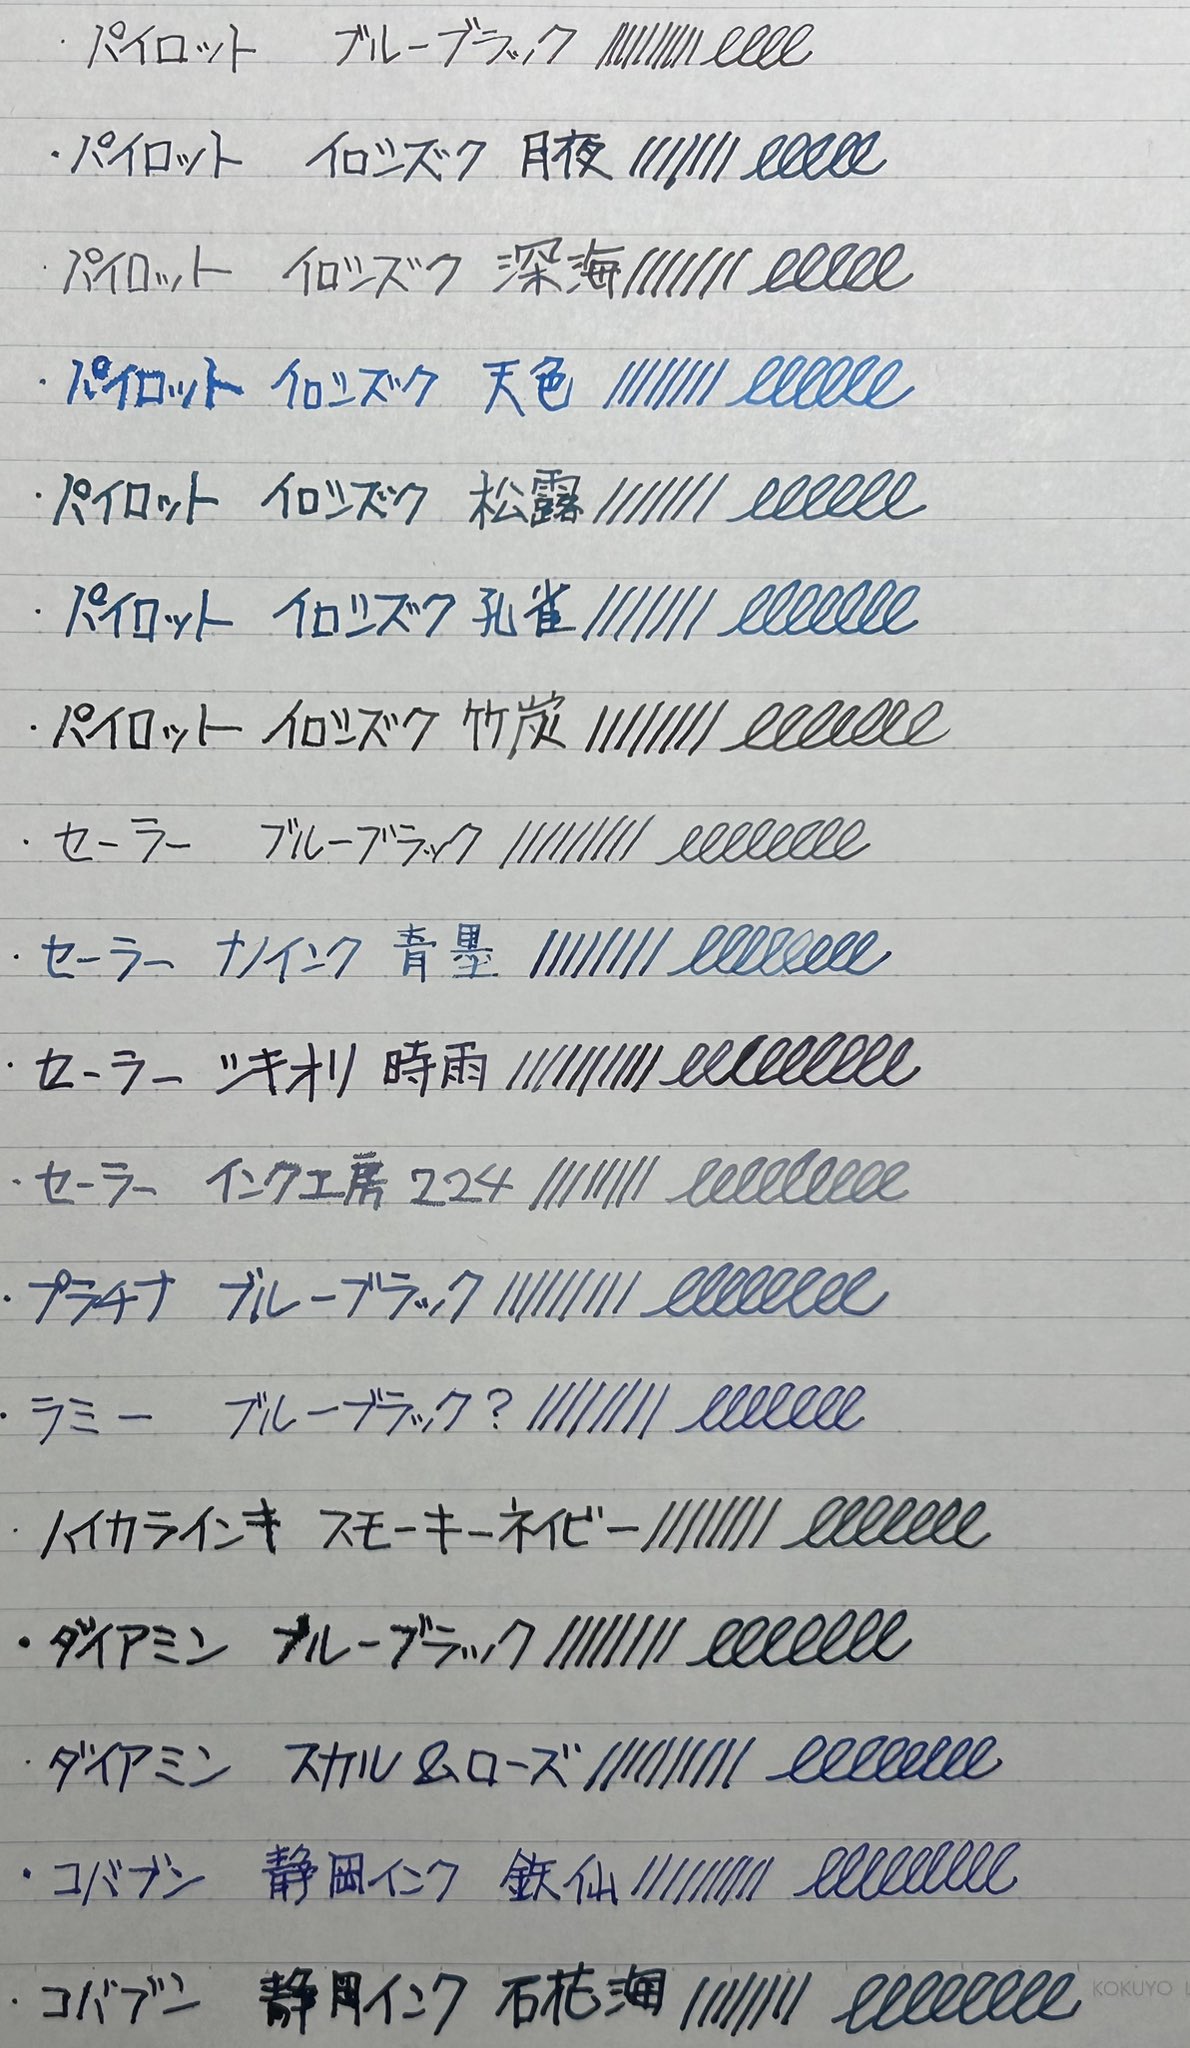 ・パイロット ブルーブラック
・パイロット イロシズク 月夜
・パイロット イロシズク 深海
・パイロット イロシズク 天色
・パイロット イロシズク 松露
・パイロット イロシズク 孔雀
・パイロット イロシズク 竹炭
・セーラー ブルーブラック
・セーラー ナノインク 青墨
・セーラー ツキオリ 時雨
・セーラー インク工房 224
・プラチナ ブルーブラック
・ラミー ブルーブラック?
・ハイカラインキ スモーキーネイビー
・ダイアミン ブルーブラック
・ダイアミン スカル&ローズ
・コバブン 静岡インク 鉄仙
・コバブン 静岡インク 石花海
KOKUYO L